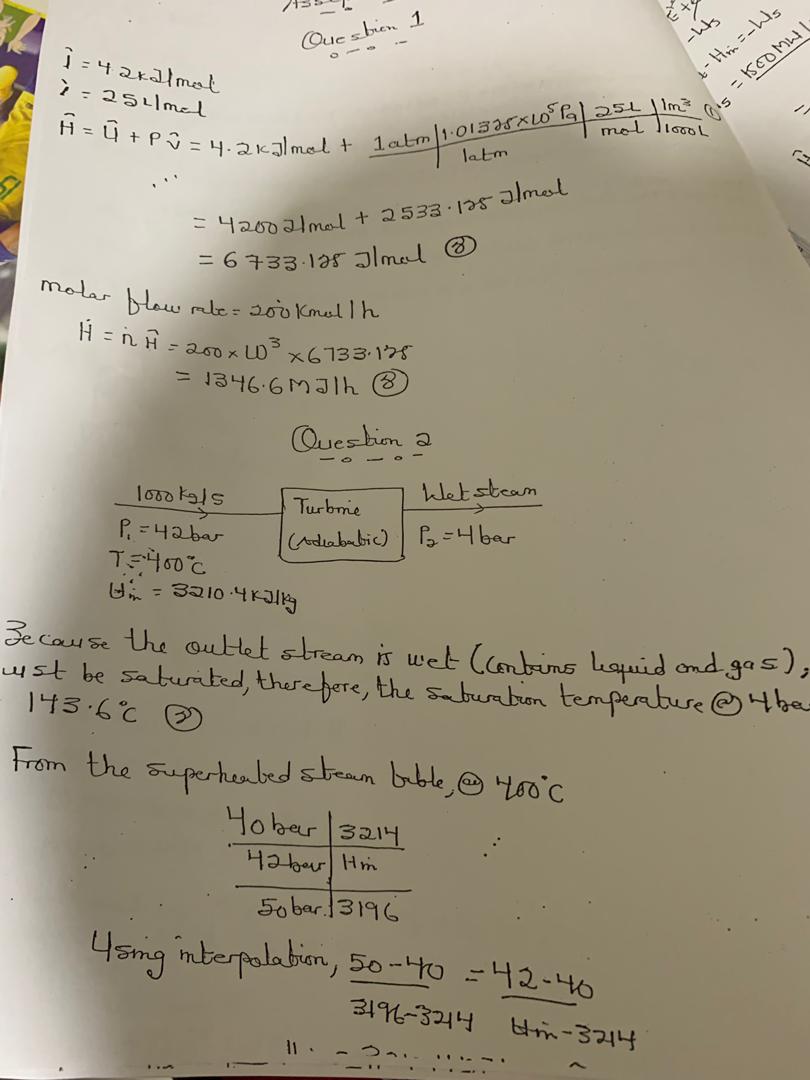 Question 1
= 4.2kJ/mol
= 25L/mol
Ĥ = Û + PV̂ = 4.2kJ/mol + 1atm | 1.01325×10⁵Pa | 25L | 1m³
1atm | mol | 1000L
= 4200J/mol + 2533.125J/mol
= 6733.125J/mol ⑧
molar flow rate = 200Kmol/h
Ḣ = ṅĤ = 200×10³×6733.125
= 1346.6MJ/h ⑧
Question 2
1000kg/s
Turbine
(Adiabatic)
Wet steam
P₁=42bar
P₂=4bar
T=400°C
Hin = 3210.4KJ/kg
Because the outlet stream is wet (contains liquid and gas),
ust be saturated, therefore, the saturation temperature @ 4ba
143.6°C
From the superheated steam table, @ 400°C
40bar | 3214
42bar | Hin
50bar | 3196
Using interpolation, 50-40 = 42-40
3196-3214 Hin-3214
-Ws
- Hin = -Ws
= 1500MW